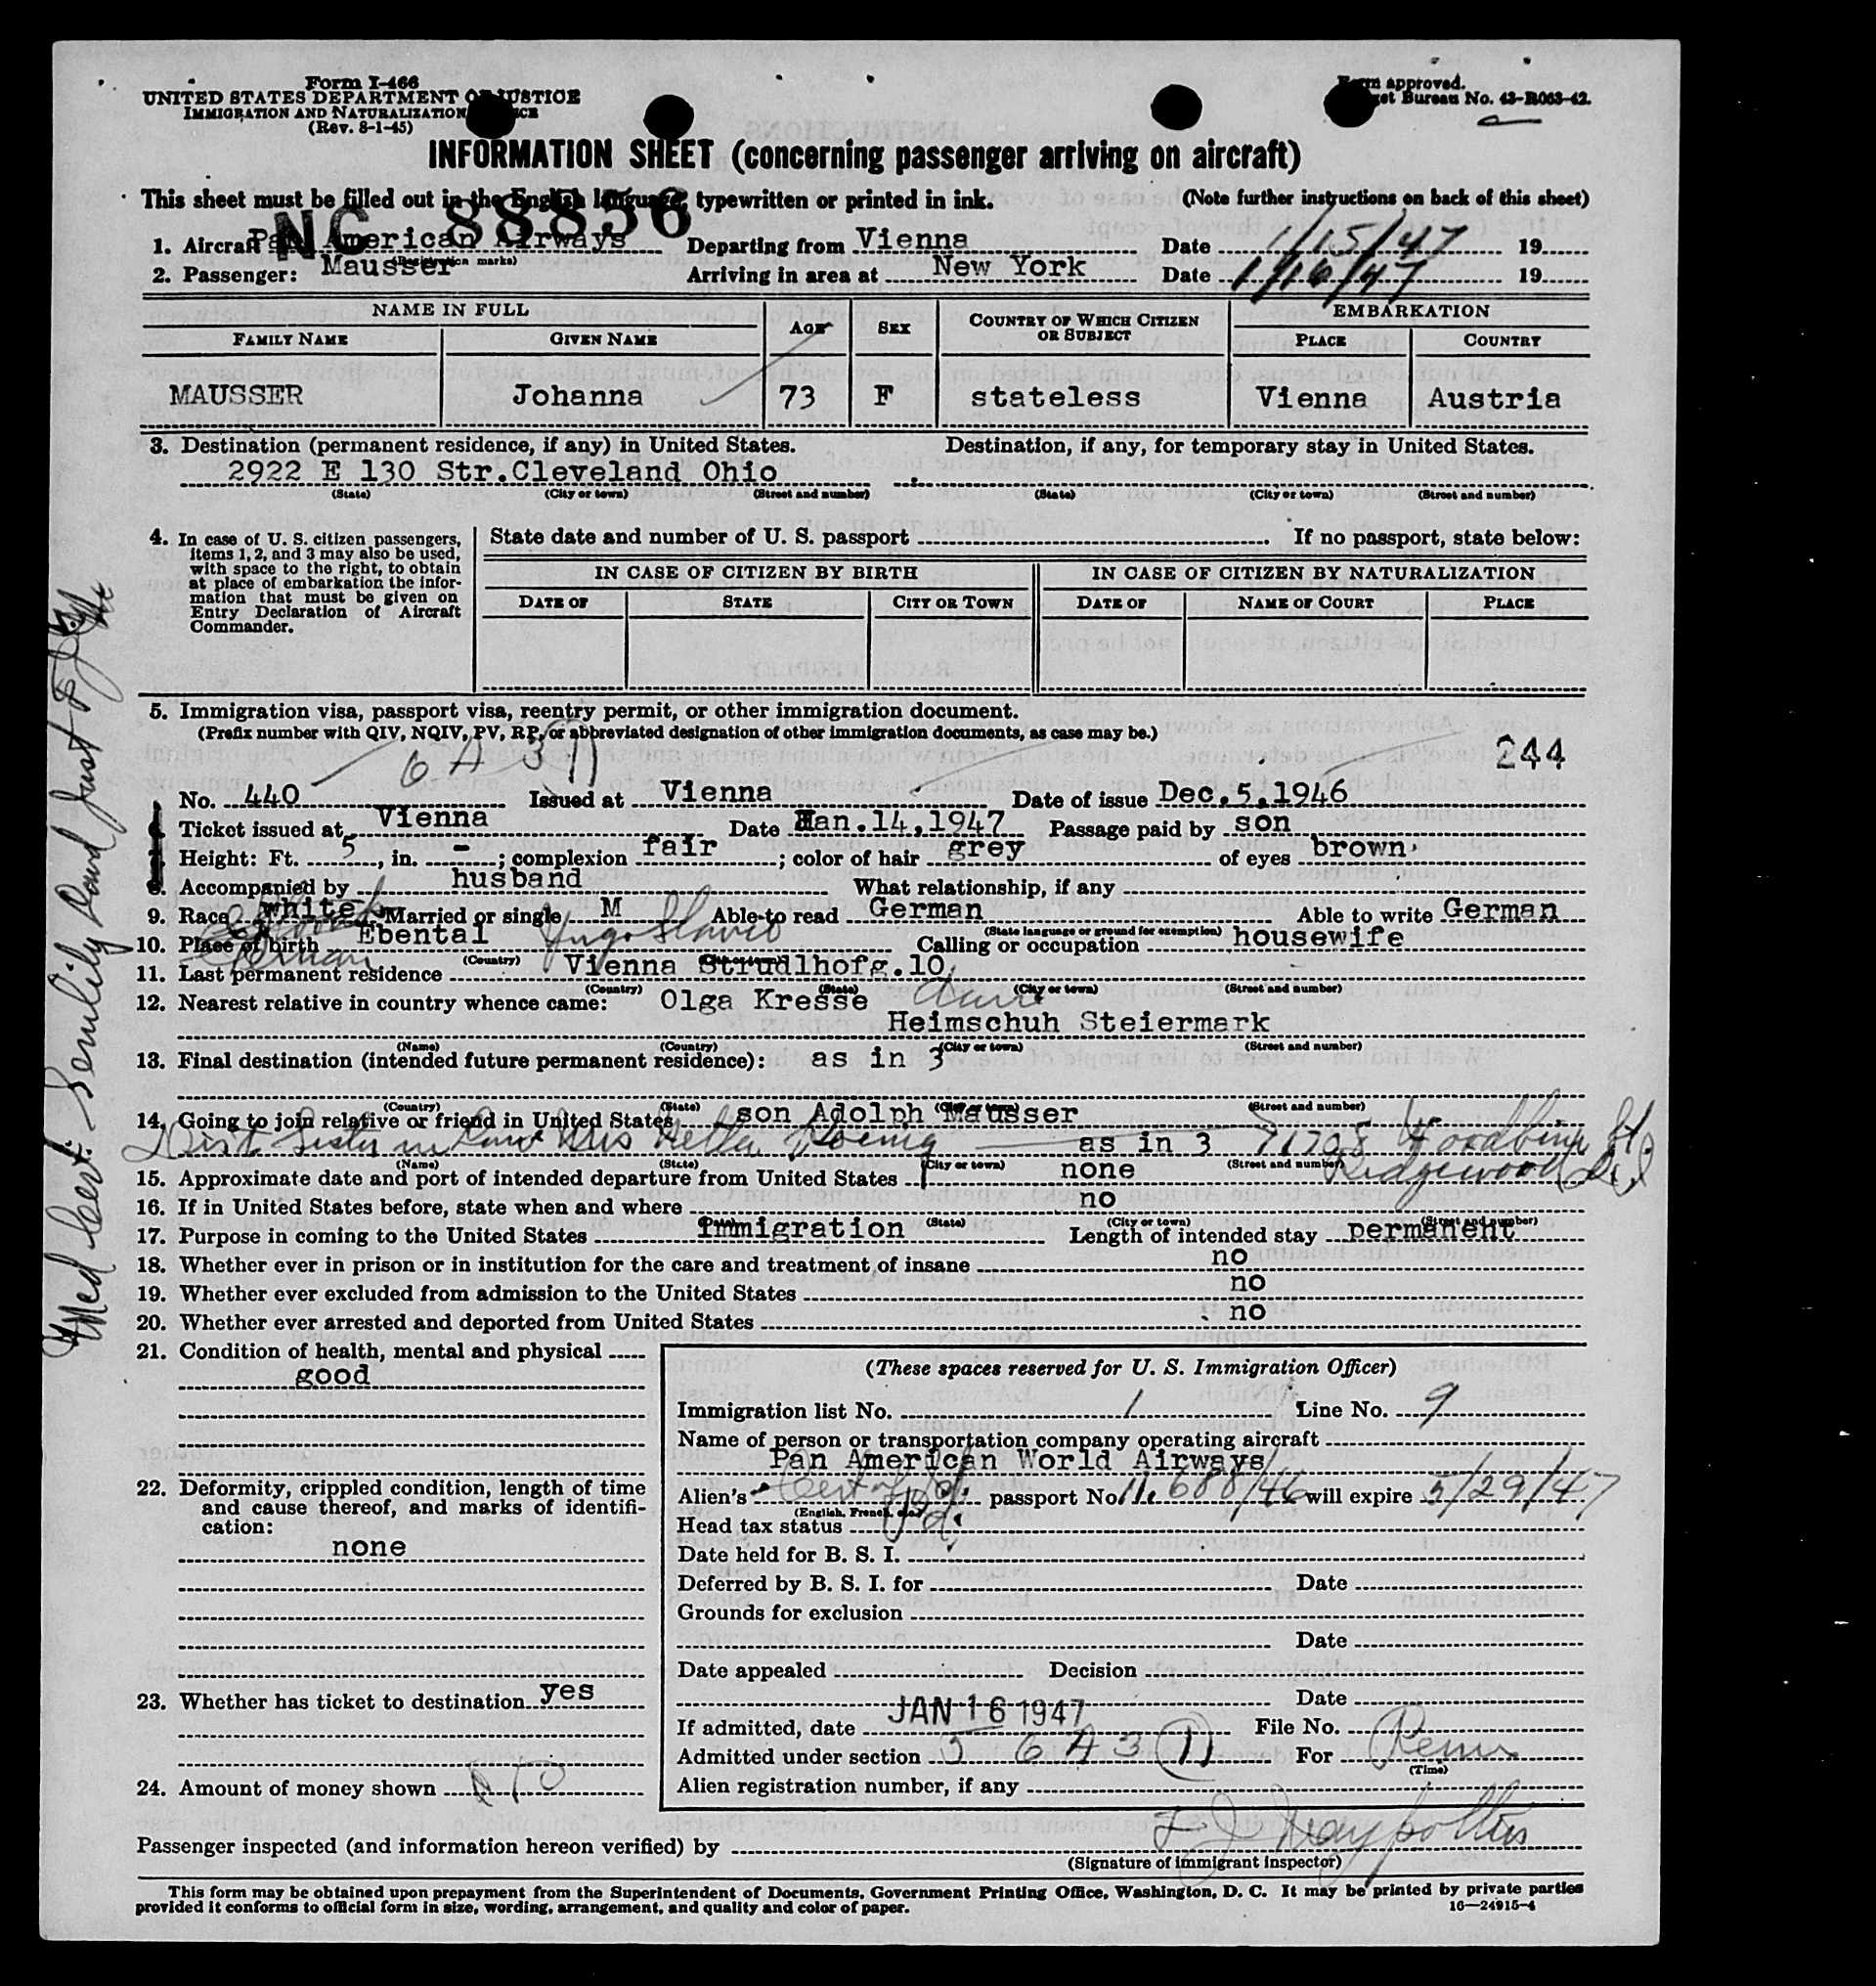 Form I-466
UNITED STATES DEPARTMENT OF JUSTICE
IMMIGRATION AND NATURALIZATION
(Rev. 8-1-45)
Form approved.
Bureau No. 43-R063-42.
INFORMATION SHEET (concerning passenger arriving on aircraft)
This sheet must be filled out in the English language, typewritten or printed in ink. (Note further instructions on back of this sheet)
NC 88856
1. Aircraft Pan American Airways Departing from Vienna Date 1/15/47 19
(Registration marks)
2. Passenger: Mausser Arriving in area at New York Date 1/16/47 19
NAME IN FULL AGE SEX COUNTRY OF WHICH CITIZEN OR SUBJECT EMBARKATION
FAMILY NAME GIVEN NAME PLACE COUNTRY
MAUSSER Johanna 73 F stateless Vienna Austria
3. Destination (permanent residence, if any) in United States. Destination, if any, for temporary stay in United States.
2922 E 130 Str.Cleveland Ohio
(State) (City or town) (Street and number) (State) (City or town) (Street and number)
4. In case of U. S. citizen passengers, items 1, 2, and 3 may also be used, with space to the right, to obtain at place of embarkation the information that must be given on Entry Declaration of Aircraft Commander.
State date and number of U. S. passport . If no passport, state below:
IN CASE OF CITIZEN BY BIRTH IN CASE OF CITIZEN BY NATURALIZATION
DATE OF STATE CITY OR TOWN DATE OF NAME OF COURT PLACE
5. Immigration visa, passport visa, reentry permit, or other immigration document.
(Prefix number with QIV, NQIV, PV, RP, or abbreviated designation of other immigration documents, as case may be.)
6 A 3 1)
244
No. 440 Issued at Vienna Date of issue Dec.5.1946
Ticket issued at Vienna Date Jan.14,1947 Passage paid by son
Height: Ft. 5, in. -; complexion fair; color of hair grey of eyes brown
8. Accompanied by husband What relationship, if any
9. Race white Married or single M Able to read German Able to write German
(State language or ground for exemption)
10. Place of birth Ebental Yugo Slavic Calling or occupation housewife
German
(Country)
11. Last permanent residence Vienna Strudlhofg.10
(Country) (State) (City or town) (Street and number)
12. Nearest relative in country whence came: Olga Kresse
Heimschuh Steiermark
(Name) (Country) (City or town) (Street and number)
13. Final destination (intended future permanent residence): as in 3
(Country) (State) (City or town) (Street and number)
14. Going to join relative or friend in United States son Adolph Mausser
Sister in Law Mrs Koenig as in 3 Woodbine St.
Ridgewood
(Name) (State) (City or town) (Street and number)
15. Approximate date and port of intended departure from United States none
16. If in United States before, state when and where no
(State) (City or town) (Street and number)
17. Purpose in coming to the United States immigration Length of intended stay permanent
18. Whether ever in prison or in institution for the care and treatment of insane no
19. Whether ever excluded from admission to the United States no
20. Whether ever arrested and deported from United States no
21. Condition of health, mental and physical
good
22. Deformity, crippled condition, length of time and cause thereof, and marks of identification:
none
23. Whether has ticket to destination yes
24. Amount of money shown
(These spaces reserved for U. S. Immigration Officer)
Immigration list No. 1 Line No. 9
Name of person or transportation company operating aircraft
Pan American World Airways
Alien's Cert of Id. passport No. 11.688/46 will expire 5/29/47
(English, French, etc.)
Head tax status Pd.
Date held for B. S. I.
Deferred by B. S. I. for Date
Grounds for exclusion
Date
Date appealed Decision
Date
If admitted, date JAN 16 1947 File No.
Admitted under section 5 6 A 3 (1) For Perm
(Time)
Alien registration number, if any
Passenger inspected (and information hereon verified) by
(Signature of immigrant inspector)
This form may be obtained upon prepayment from the Superintendent of Documents, Government Printing Office, Washington, D. C. It may be printed by private parties
provided it conforms to official form in size, wording, arrangement, and quality and color of paper. 16—24915-4
Med Cert. Senility